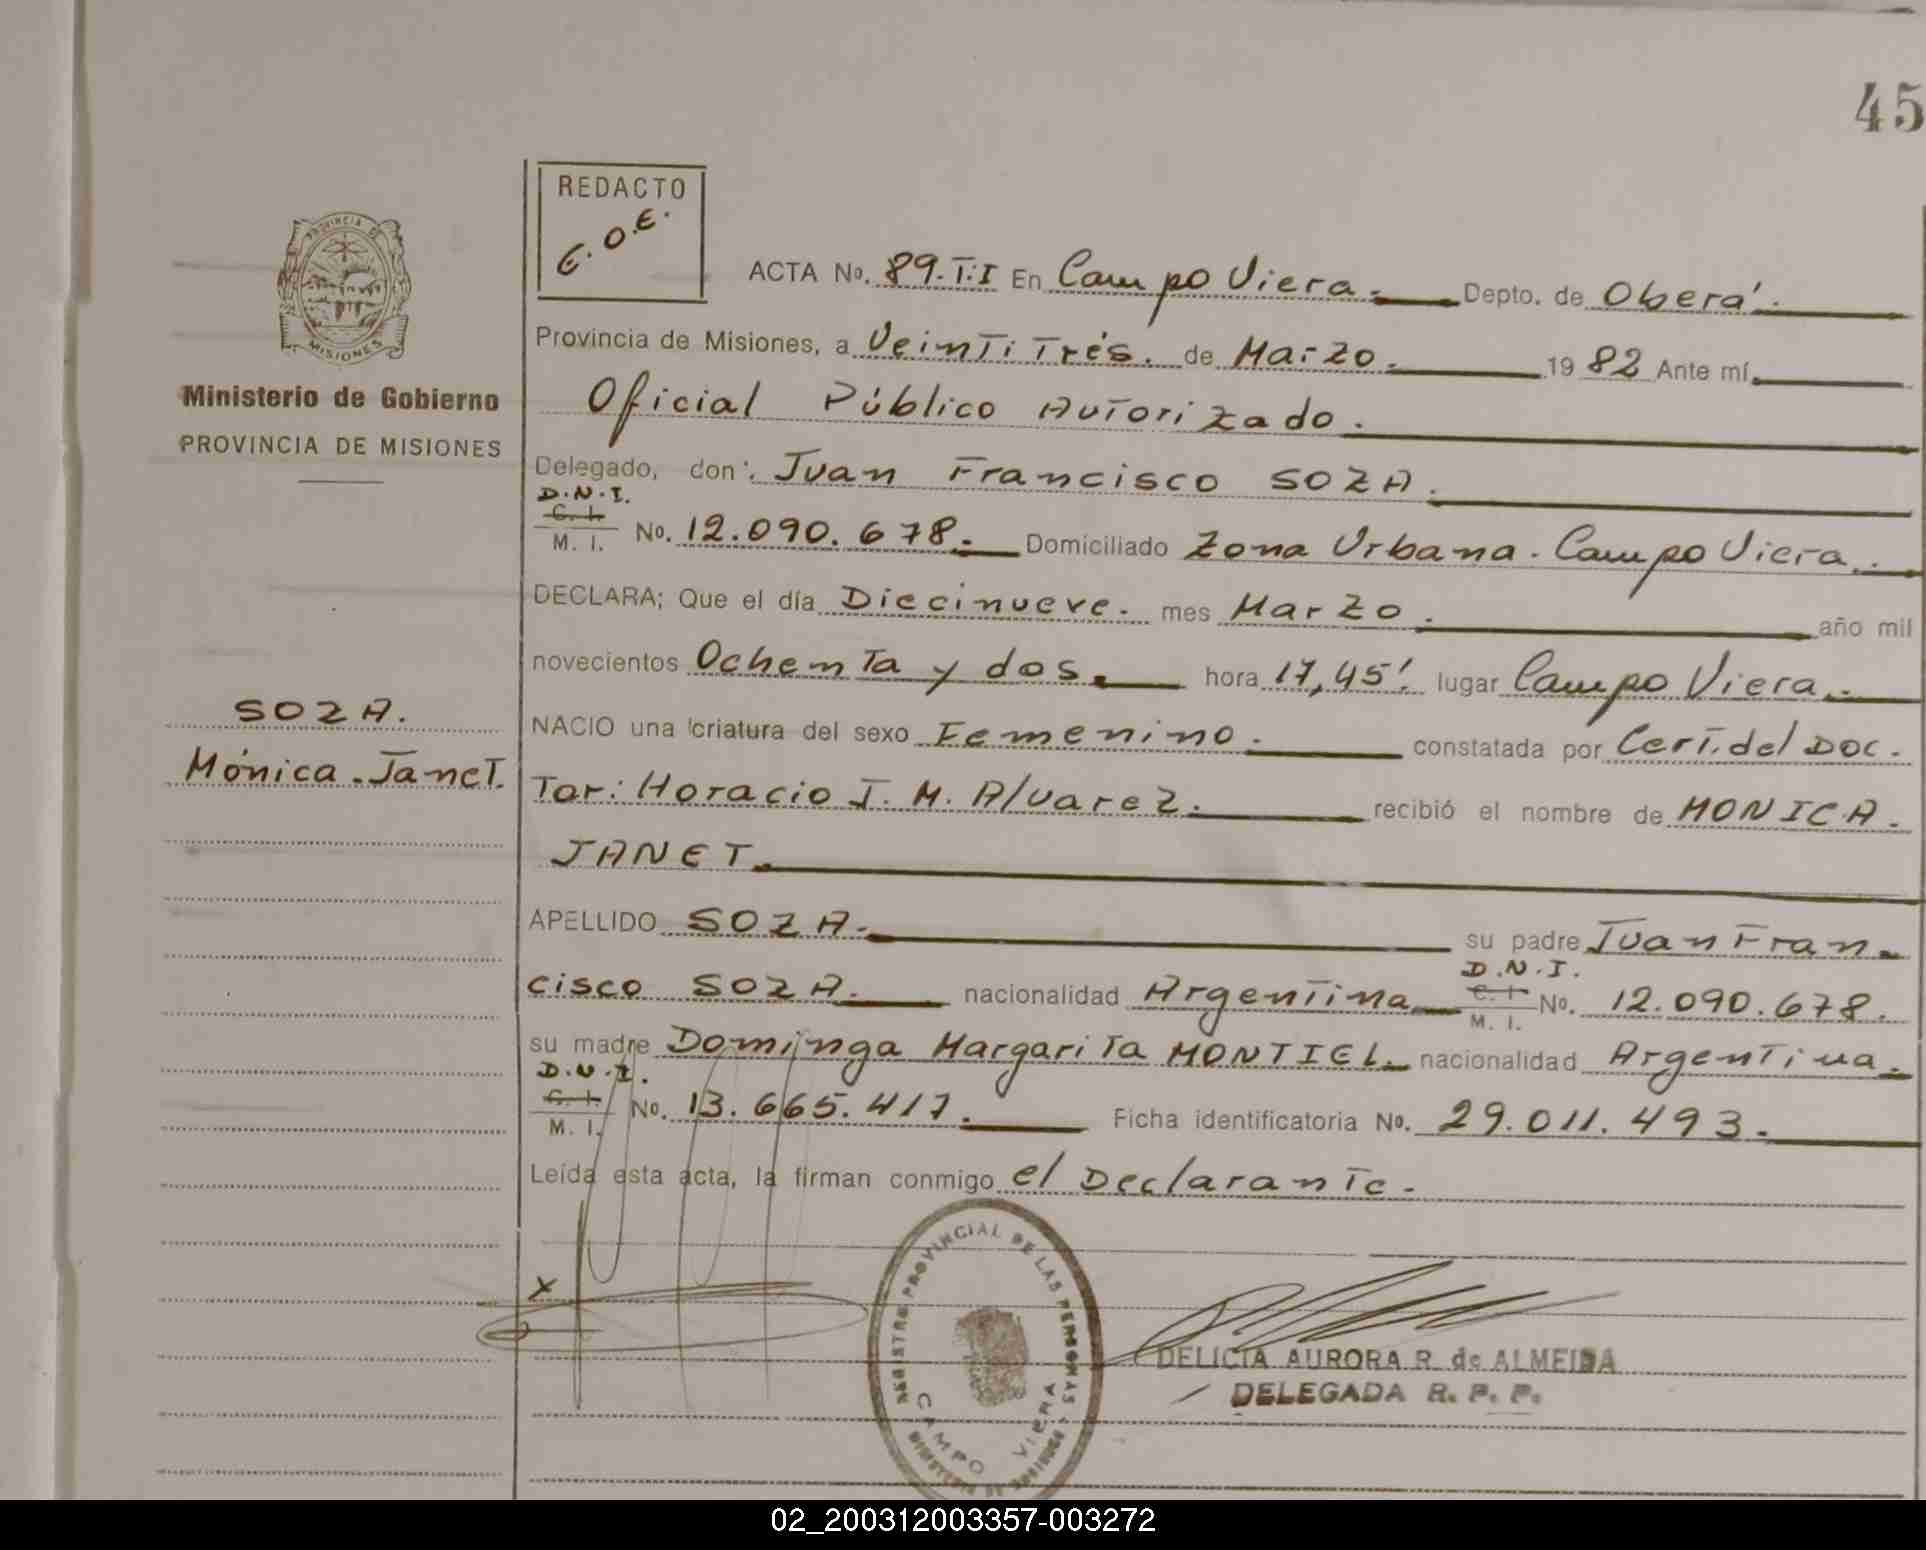 45
REDACTO
E.O.E.
PROVINCIA DE
MISIONES
Ministerio de Gobierno
PROVINCIA DE MISIONES
ACTA No. 89.T:I En Campo Viera. Depto. de Oberá.
Provincia de Misiones, a Veintitrés. de Marzo. 1982 Ante mí
Oficial Público Autorizado.
Delegado, don: Juan Francisco SOZA.
D.N.I.
C. I.
M. I. No. 12.090.678. Domiciliado Zona Urbana. Campo Viera.
DECLARA; Que el día Diecinueve. mes Marzo. año mil
novecientos Ochenta y dos. hora 17,45'. lugar Campo Viera.
SOZA.
Mónica.Janet.
NACIO una criatura del sexo Femenino. constatada por Cert.del Doc.
Tor: Horacio J. M. Alvarez. recibió el nombre de MONICA.
JANET.
APELLIDO SOZA. su padre Juan Fran
cisco SOZA. nacionalidad Argentina D.N.I. C. I. M. I. No. 12.090.678.
su madre Dominga Margarita MONTIEL. nacionalidad Argentina.
D.N.I.
C. I.
M. I. No. 13.665.417. Ficha identificatoria No. 29.011.493.
Leída esta acta, la firman conmigo el Declarante.
X
REGISTRO PROVINCIAL DE LAS PERSONAS
CAMPO VIERA
DELICIA AURORA R. de ALMEIDA
DELEGADA R. P. P.
02_200312003357-003272